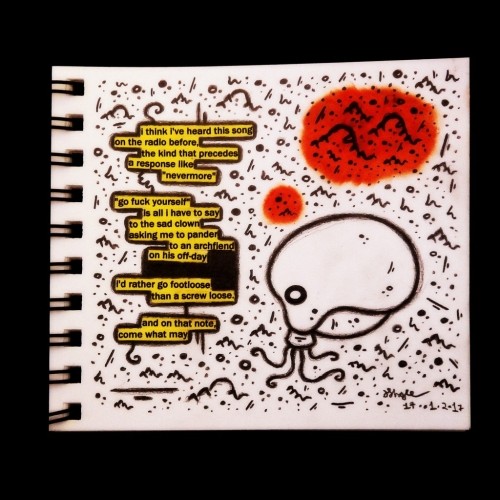 i think i've heard this song
on the radio before,
the kind that precedes
a response like
"nevermore"
"go fuck yourself"
is all i have to say
to the sad clown
asking me to pander
to an archfiend
on his off-day
i'd rather go footloose
than a screw loose.
and on that note,
come what may
14.01.2017